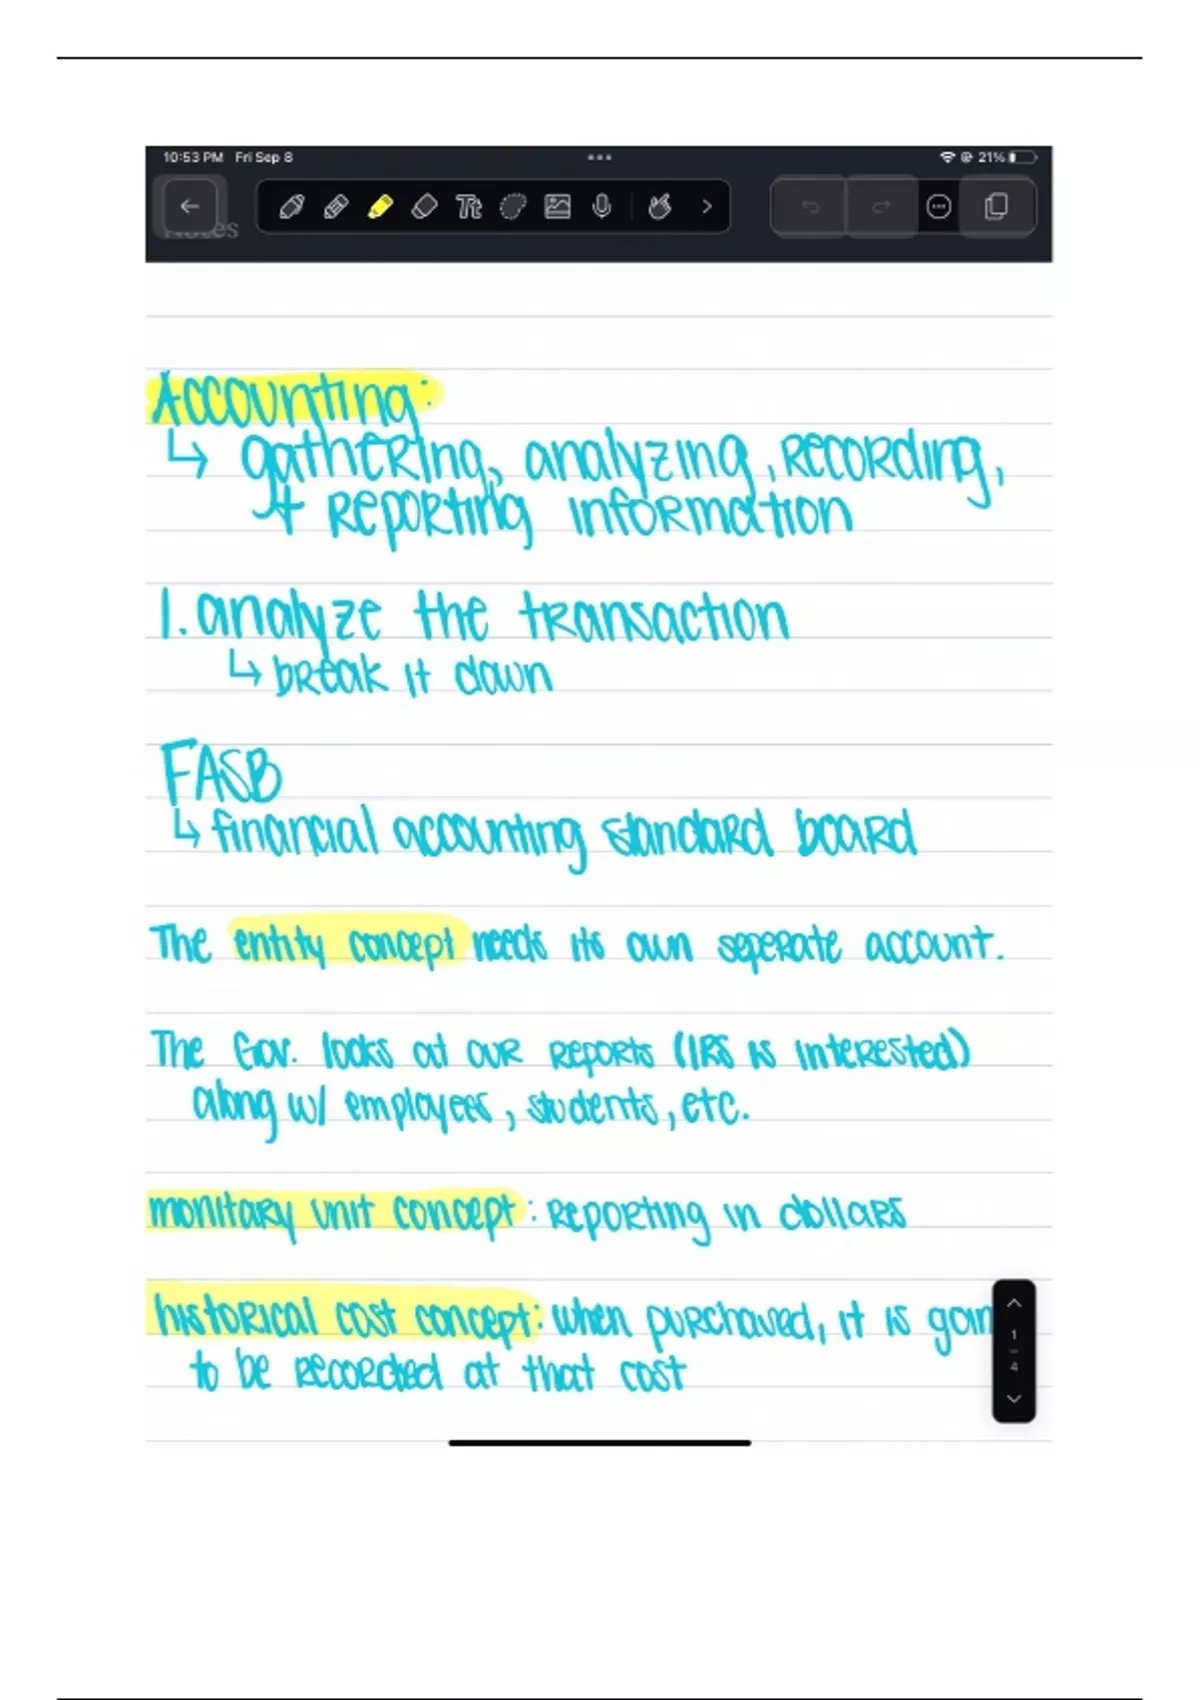 10:53 PM Fri Sep 8
21%
Notes
Accounting:
↳ gathering, analyzing, recording,
+ reporting information
1. analyze the transaction
↳ break it down
FASB
↳ financial accounting standard board
The entity concept needs its own seperate account.
The Gov. looks at our reports (IRS is interested)
along w/ employees, students, etc.
monitary unit concept: reporting in dollars
historical cost concept: when purchased, it is goin
to be recorded at that cost
1
4